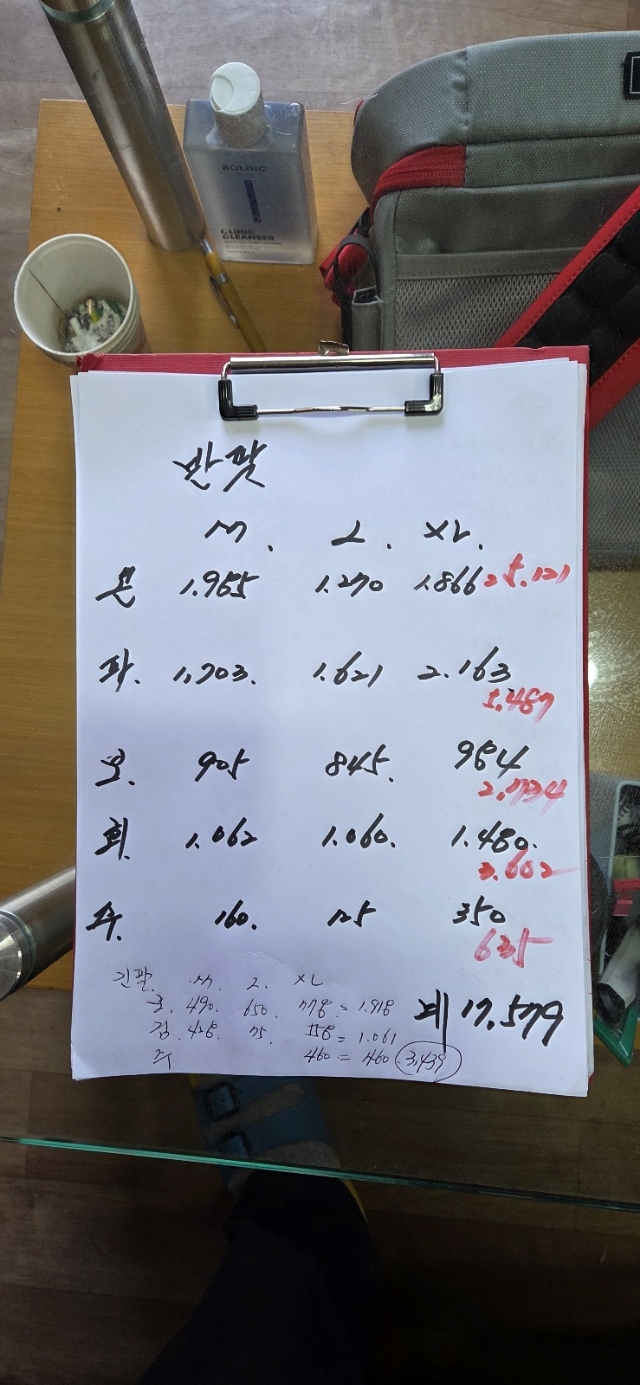 반팔
M. L. XL.
1.985 1.270 1.866 = 5.121
파. 1.703. 1.621 2.163
5.487
905 845. 984
2.734
회. 1.062 1.060. 1.480.
3.602
주. 160. 125 350
635
긴팔. M. L. XL
490. 650. 778 = 1.918
검. 428. 75. 558 = 1.061
주 460 = 460 3.439
계 17.579
BOLDIC
CLINIC
CLEANSER